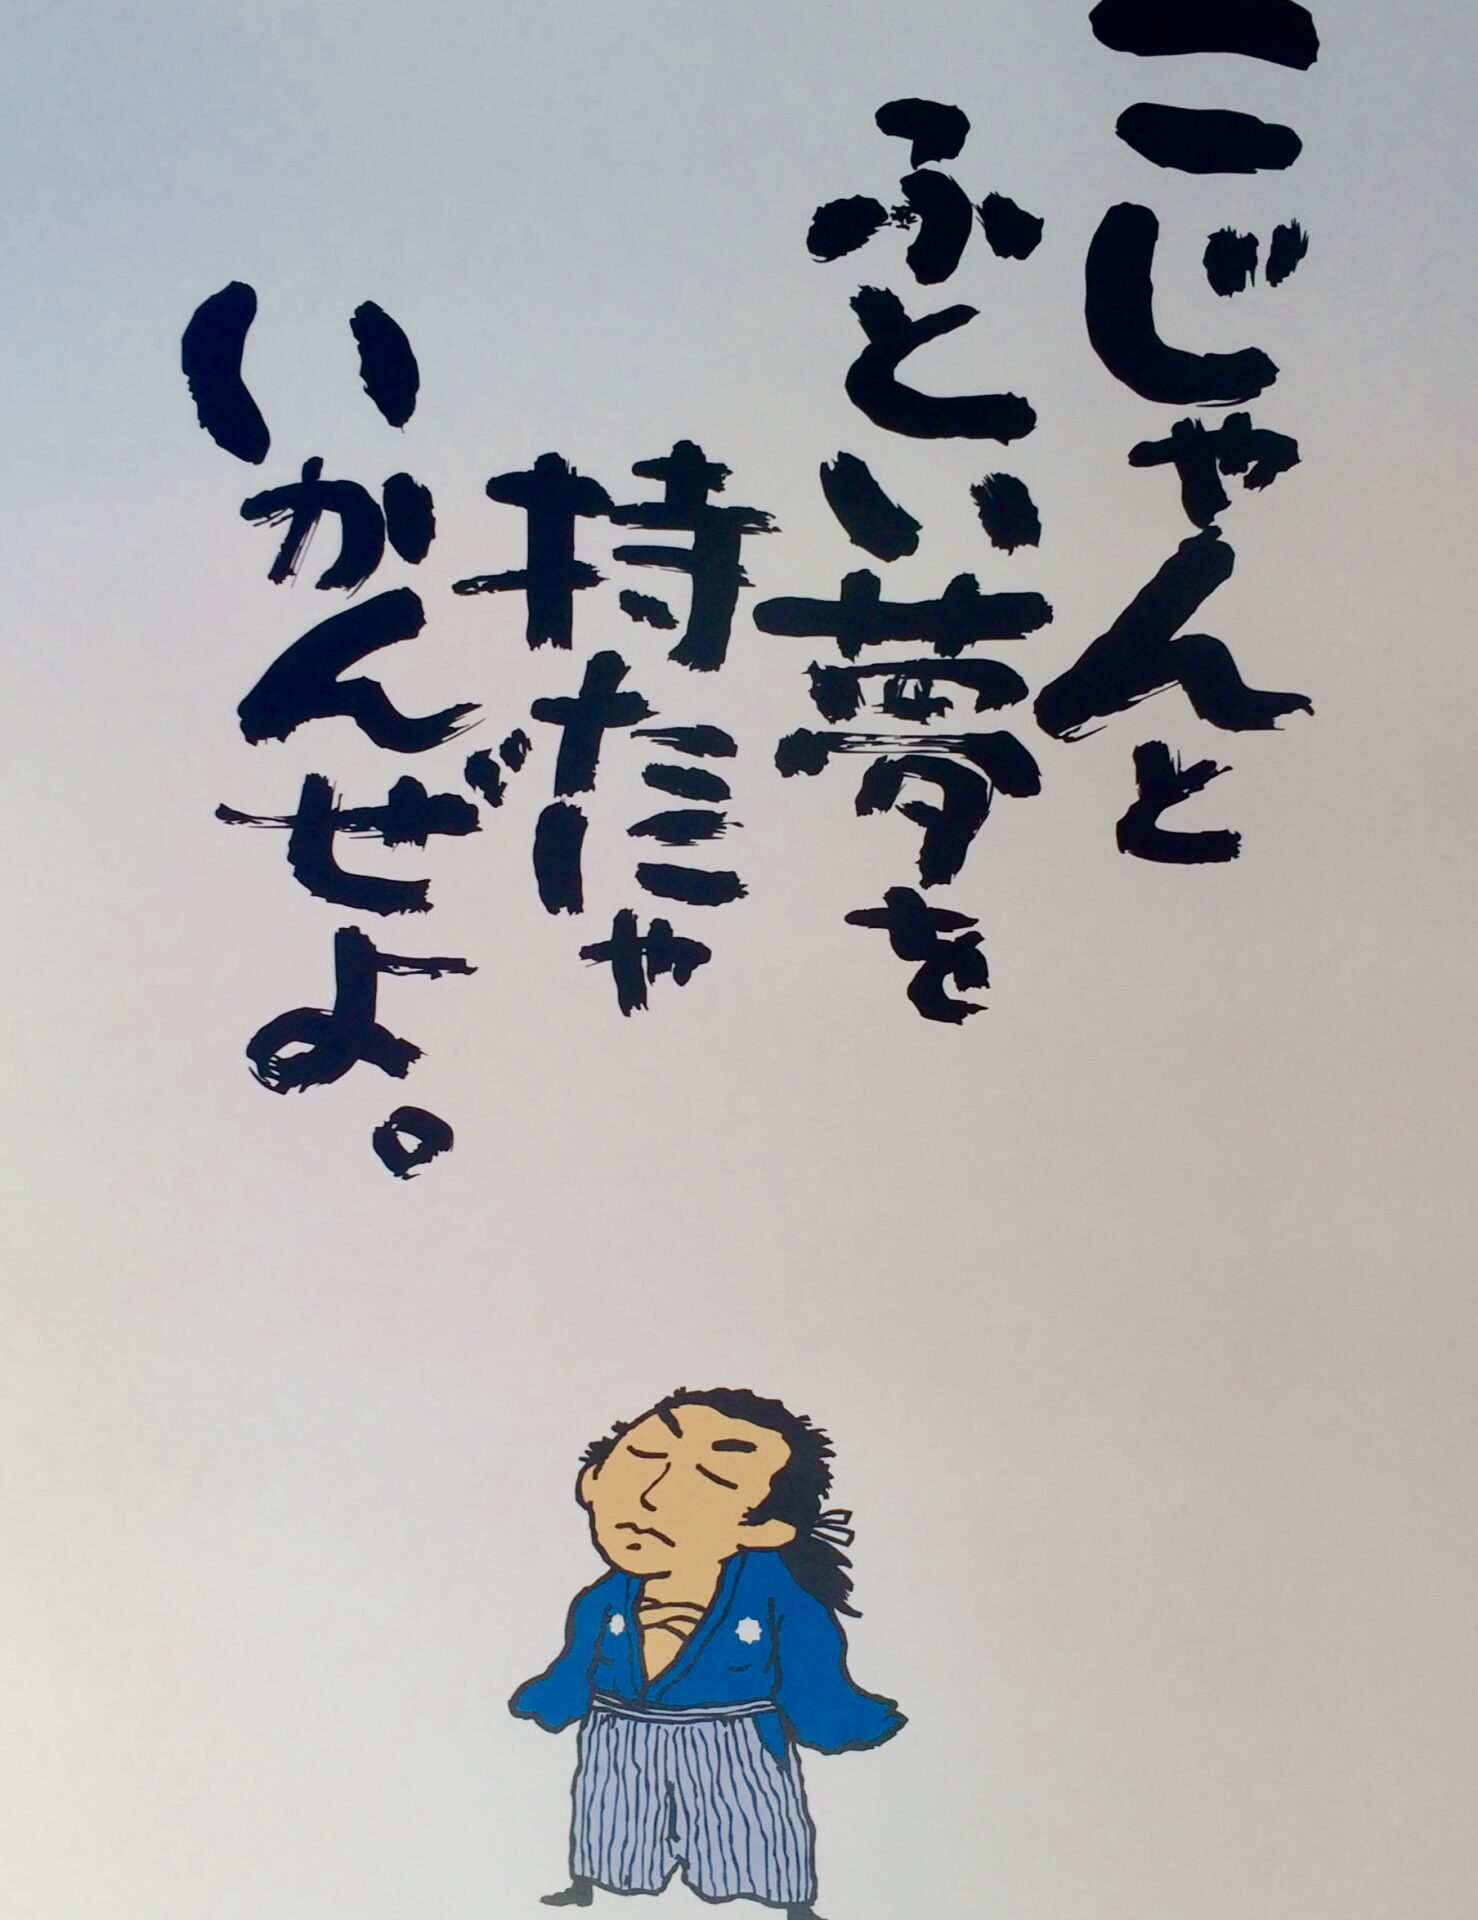 こじゃんと
ふとい夢を
持たにゃ
いかんぜよ。